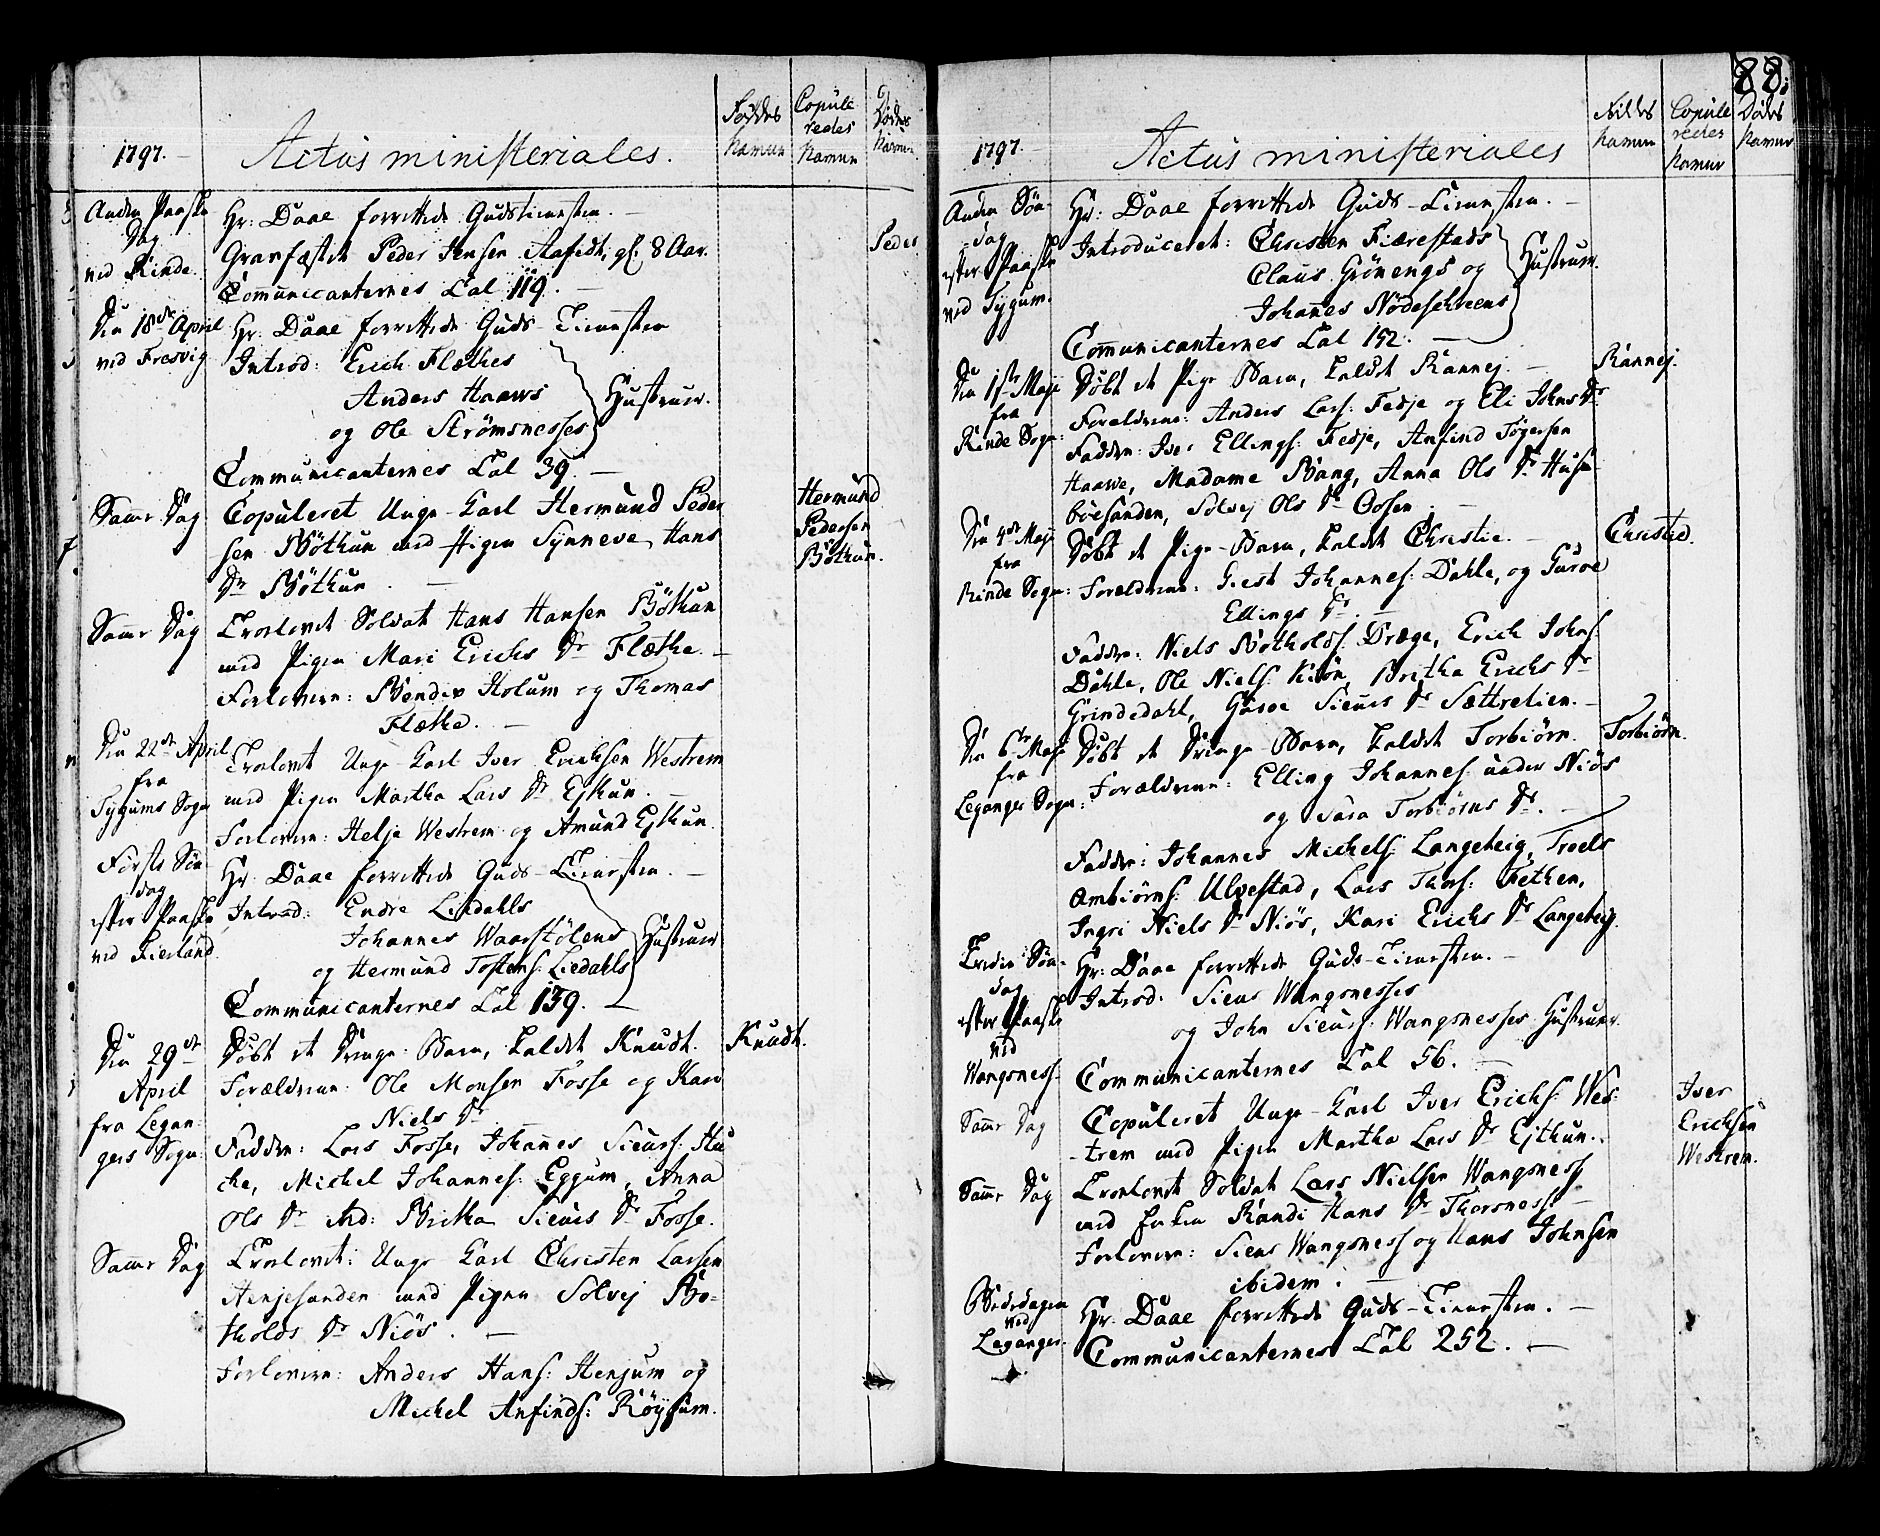 1797.
Actus ministeriales.
Föddes Namn
Copuleredes Namn
Dödes Namn
Anden Paaske Dag ved Rinde.
Hr: Daae forrettede Gudstienesten. —
Gravfæstet Peder Jensen Aafedt, gl. 8 Aar.
Peder
Communicanternes Tal 119. —
Den 18de April ved Fresvig
Hr: Daae forrettede Guds-Tienesten
Introd: Erich Flæthes
Anders Haaws
og Ole Strömsnesses
Hustruer.
Communicanternes Tal 39. —
Samme Dag
Copuleret Unge-Karl Hermund Peder
sen Böthun med Pigen Synneve Hans
Dr Böthun. —
Hermund
Pedersen
Böthun.
Samme Dag
Trolovet Soldat Hans Hansen Böthun
med Pigen Mari Erichs Dr Flæthe. —
Forlovere: Bendix Holum og Thomas
Flæthe. —
Den 22de April fra Tygums Sogn
Trolovet Unge-Karl Iver Erichsen Westrem
med Pigen Martha Lars Dr Ejthun. —
Forlovere: Helje Westrem og Amund Ejthun.
Förste Söndag efter Paaske ved Fierland.
Hr: Daae forrettede Guds-Tienesten. —
Introd: Endre Liedahls
Johannes Waarstölens
og Hermund Tostens: Liedahls
Hustruer
Communicanternes Tal 139. —
Den 29de April fra Leganger Sogn.
Döbt et Drenge-Barn, kaldet Knudt.
Knudt.
Forældrene: Ole Monsen Fosse og Kari
Niels Dr
Faddere: Lars Fosse, Johannes Siurs: Hu
che, Michel Johannes: Eggum, Anna
Ols Dr ibid: Britha Siurs Dr Fosse.
Samme Dag
Trolovet: Unge Karl Christen Larsen
Henjesanden med Pigen Solvej Bo-
tholds Dr Niös. —
Forlovere: Anders Hans: Henjum og
Michel Anfinds: Röysum.
88.
1797.
Actus ministeriales
Föddes Namn
Copuleredes Namn
Dödes Namn
Anden Söndag efter Paaske ved Tygum.
Hr: Daae forrettede Guds-Tienesten. —
Introduceret: Christen Fiærestads
Claus Grönengs og
Johannes Nödesehreens
Hustruer.
Communicanternes Tal 152. —
Den 1ste Maje fra Rinde Sogn:
Döbt et Pige Barn, kaldet Rannej. —
Rannej.
Forældrene: Anders Lars: Fedje og Eli Johns Dr
Faddere: Iver Ellings: Fedje, Anfind Tögersen
Haawe, Madame Bang, Anna Ols Dr Huse
böesanden, Solvej Ols Dr Orsen. —
Den 4de Maje fra Rinde Sogn:
Döbt et Pige-Barn, kaldet Christie. —
Christie.
Forældrene: Giest Johannes: Dahle, og Guroe
Ellings Dr. —
Faddere: Niels Botholds: Dræge, Erich Johns:
Dahle, Ole Niels: Kiön, Britha Erichs Dr
Grindedahl, Guroe Siurs Dr Sættrelien. —
Den 6te Maje fra Leganger Sogn:
Döbt et Drenge Barn, kaldet Torbiörn.
Torbiörn.
Forældrene: Elling Johannes: under Niös
og Sara Torbiörns Dr. —
Faddere: Johannes Michels: Langeteig, Troels
Ambiörns: Ulvestad, Lars Thors: Fethen,
Ingri Niels Dr Niös, Kari Erichs Dr Langeteig.
Tredie Söndag efter Paaske ved Wangsness.
Hr: Daae forrettede Guds-Tienesten. —
Introd: Siurs Wangsnesses
og John Siurs: Wangsnesses Hustruer.
Communicanternes Tal 56. —
Samme Dag
Copuleret Unge-Karl Iver Erichs: Wes-
trem med Pigen Martha Lars Dr Ejthun.
Iver
Erichsen
Westrem.
Samme Dag
Trolovet Soldat Lars Nielsen Wangsness
med Enken Randi Hans Dr Thorsness —
Forlovere: Siurs Wangsness og Hans Johnsen
ibidem. —
Bededagen ved Leganger.
Hr: Daae forrettede Guds-Tienesten. —
Communicanternes Tal 252. —